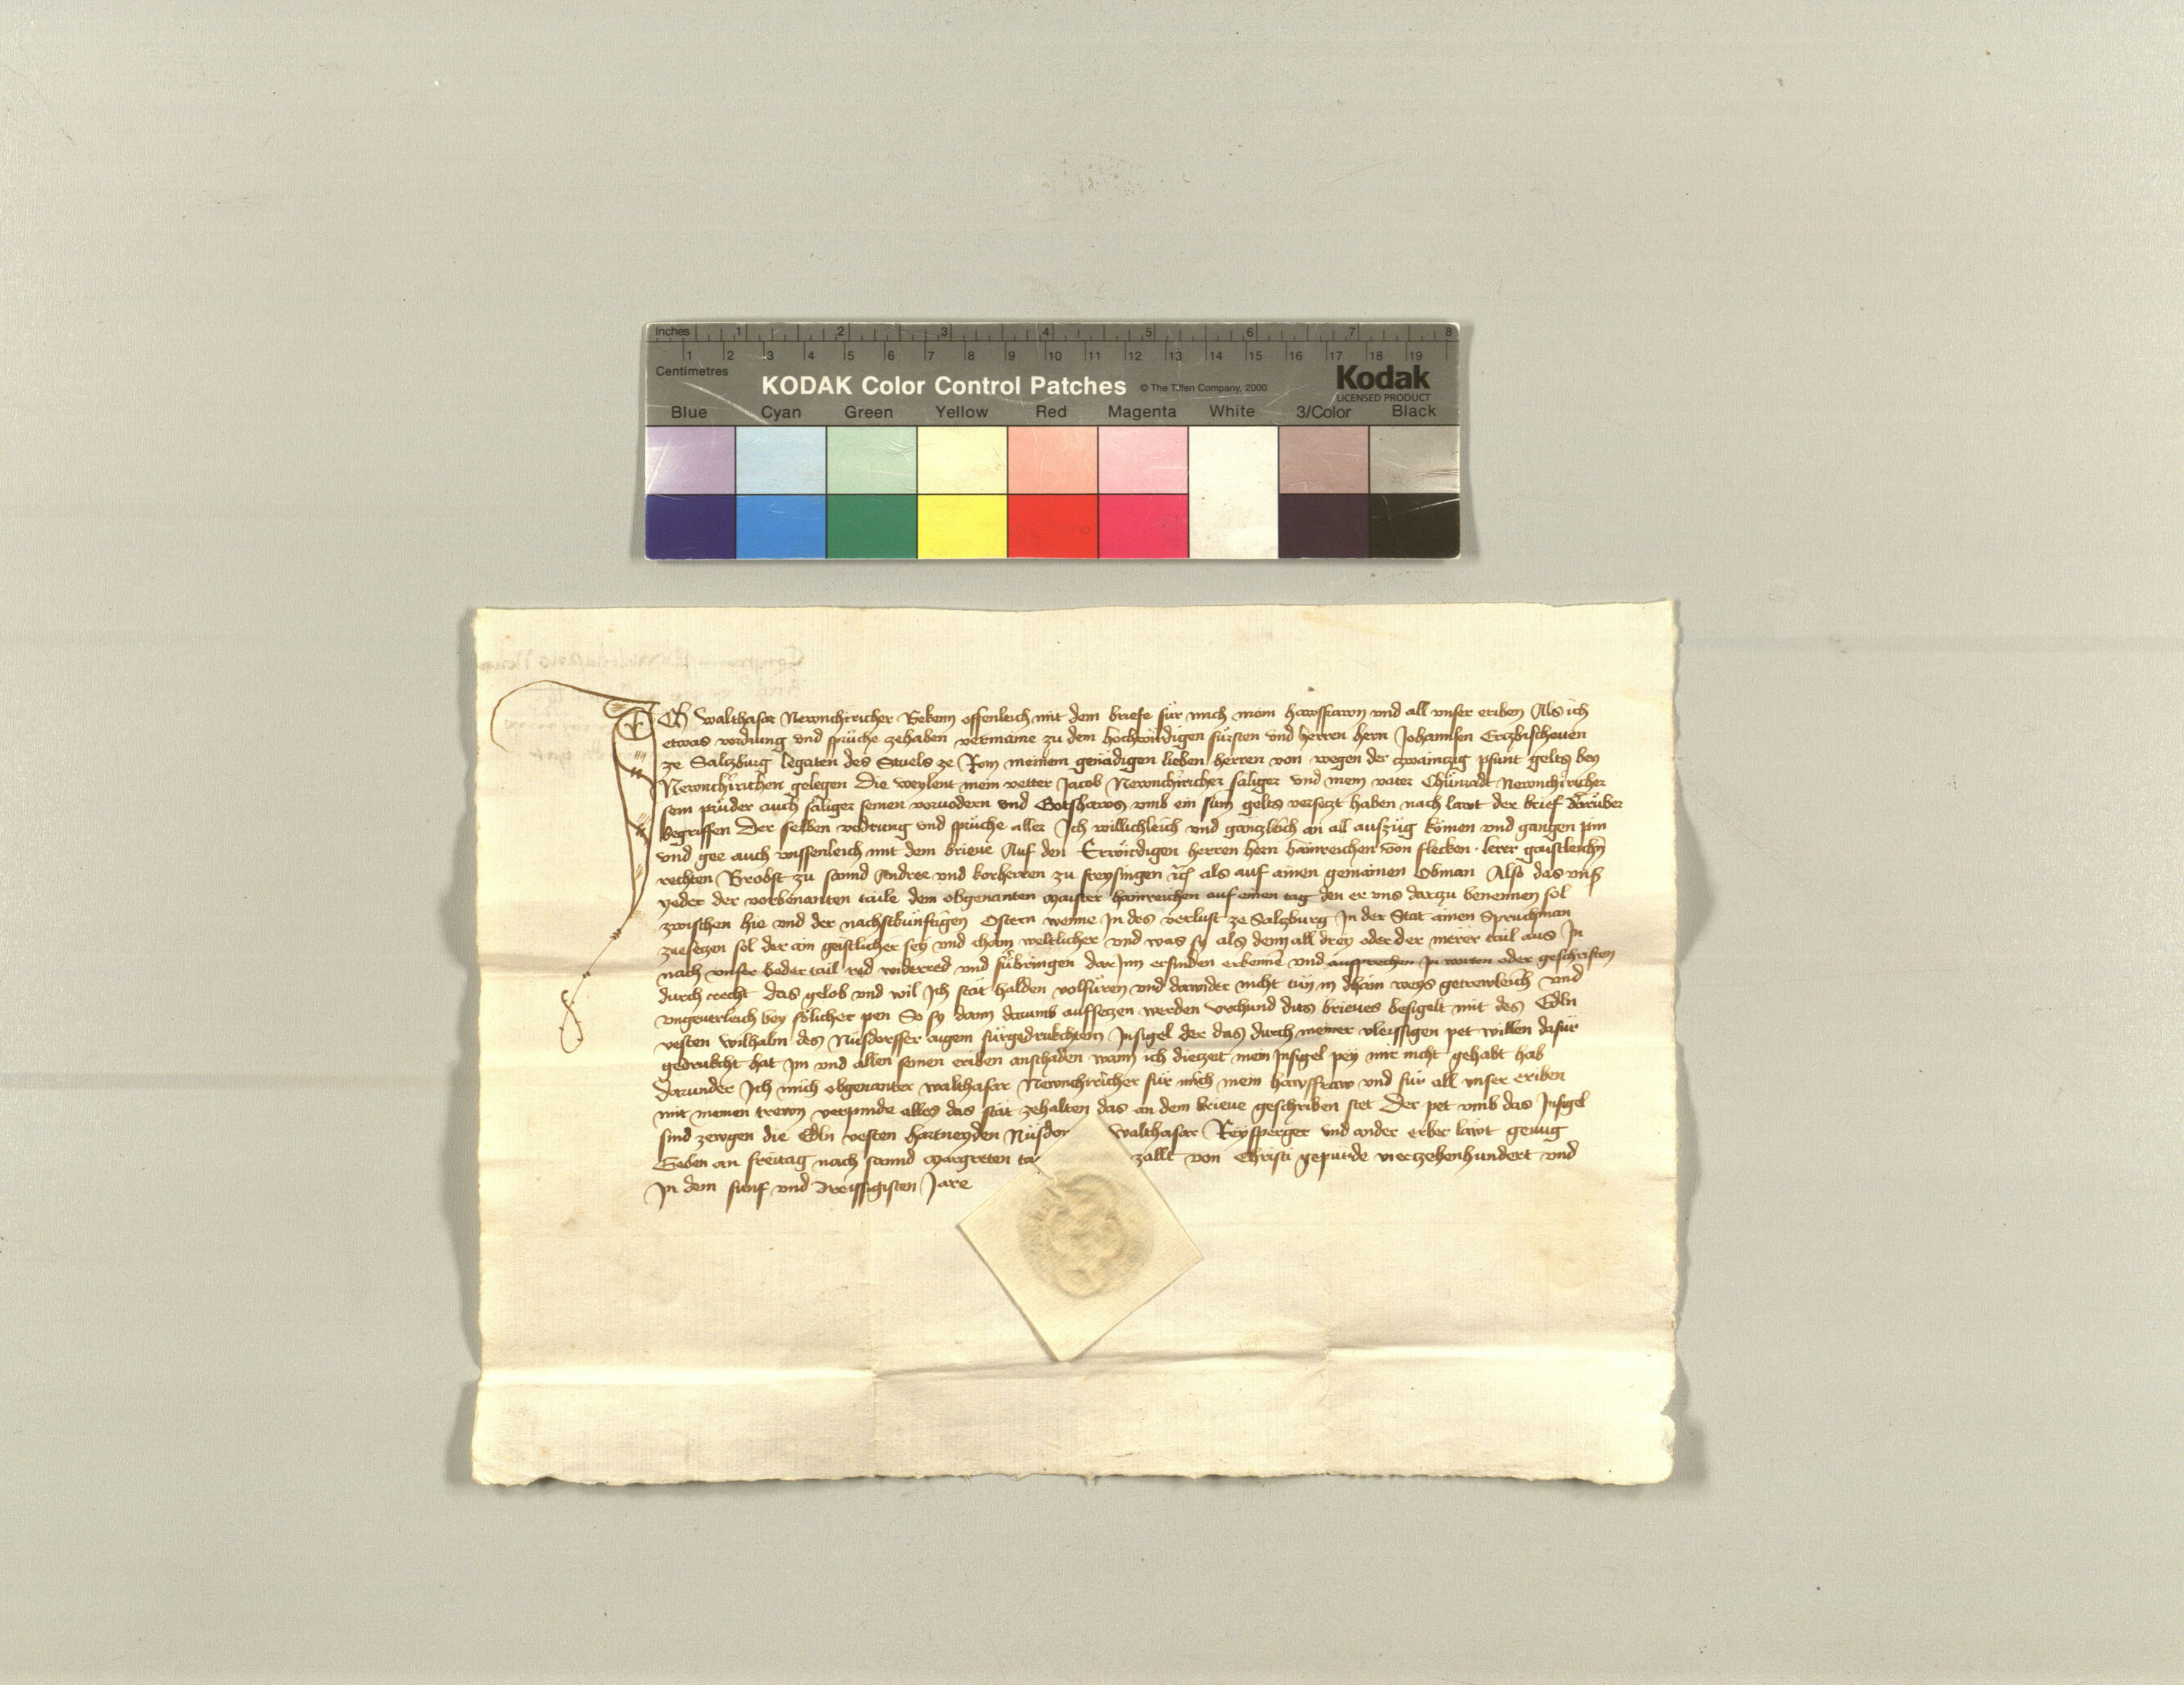 Inches 1 2 3 4 5 6 7 8
1 2 3 4 5 6 7 8 9 10 11 12 13 14 15 16 17 18 19
Centimetres
KODAK Color Control Patches © The Tiffen Company, 2000 Kodak
LICENSED PRODUCT
Blue Cyan Green Yellow Red Magenta White 3/Color Black
Ich Walthasar Newnchiricher Bekenn offenleich mit dem briefe für mich mein hawsfrawn vnd all vnser eriben Als ich
etwas vordrung vnd sprüche zehaben vermaine zu dem hochwirdigen fürsten vnd herren hern Johannsen Erczbischeuen
ze Salczburg legaten des Stuels ze Rom meinem genädigen lieben herren von wegen der zwainczig phunt gelts bey
Newnchirichen gelegen Die weylent mein vetter Jacob Newnchiricher säliger vnd mein vater Chünradt Newnchiricher
sein prüder auch säliger seinen voruodern vnd Gotshaws vmb ein sum gelts versetzt haben nach lawt der brief darüber
begriffen Der selben vodrung vnd sprüche aller Ich willichleich vnd gänczleich an all auszüg kömen vnd gangen pin
vnd gee auch wissenleich mit dem brieue Auf den Erwirdigen herren hern hainreichen von flecken lerer gaistleichen
rechten Brobst zu sannd Andree vnd korherren zu freysingen als auf ainen gemainen Obman Also das vnser
yeder der vorbenanten taile dem obgenanten Maister hainreichen auf einen tag den er vns darczu benennen sol
zwischen hie vnd der nachstkünftigen Ostern wenne In des verlust ze Salczburg In der Stat ainen Spruchman
zuseczen sol der ain geistlicher sey vnd chain weltlicher vnd was sy als denn all drey oder der merer tail aus In
nach vnser beder tail red widerred vnd fürbringen dar Inn erfinden erkenne vnd aussprechen In worten oder geschriften
durch recht das gelob vnd wil Ich stät halden volfüren vnd dawider nicht tün in dhain weys getrewleich vnd
vngeuerleich bey sölicher pen So sy dann darumb aufseczen werden vrchund dits brieues besigelt mit des Edln
vesten Wilhalm des Nüsdorffer aigem fürgedrukchtem Insigel der das durch meiner vleissigen pet willen dafür
gedrukcht hat Im vnd allen seinen eriben anschaden wann ich dieczeit mein Insigel pey mir nicht gehabt hab
Darunder Ich mich obgenanter Walthasar Newnchiricher für mich mein hawsfraw vnd für all vnser eriben
mit meinen trewn verpinde alles das stät zehalten das an dem brieue geschriben stet Der pet vmb das Insigel
sind zewgen die Edln vesten hartneyden Nüsdor Walthasar Reysperger vnd ander erber läwt genüg
Geben an freitag nach sannd Margreten ta zallt von Christi gepurde vierczehenhundert vnd
In dem fünf vnd dreissigisten Jare